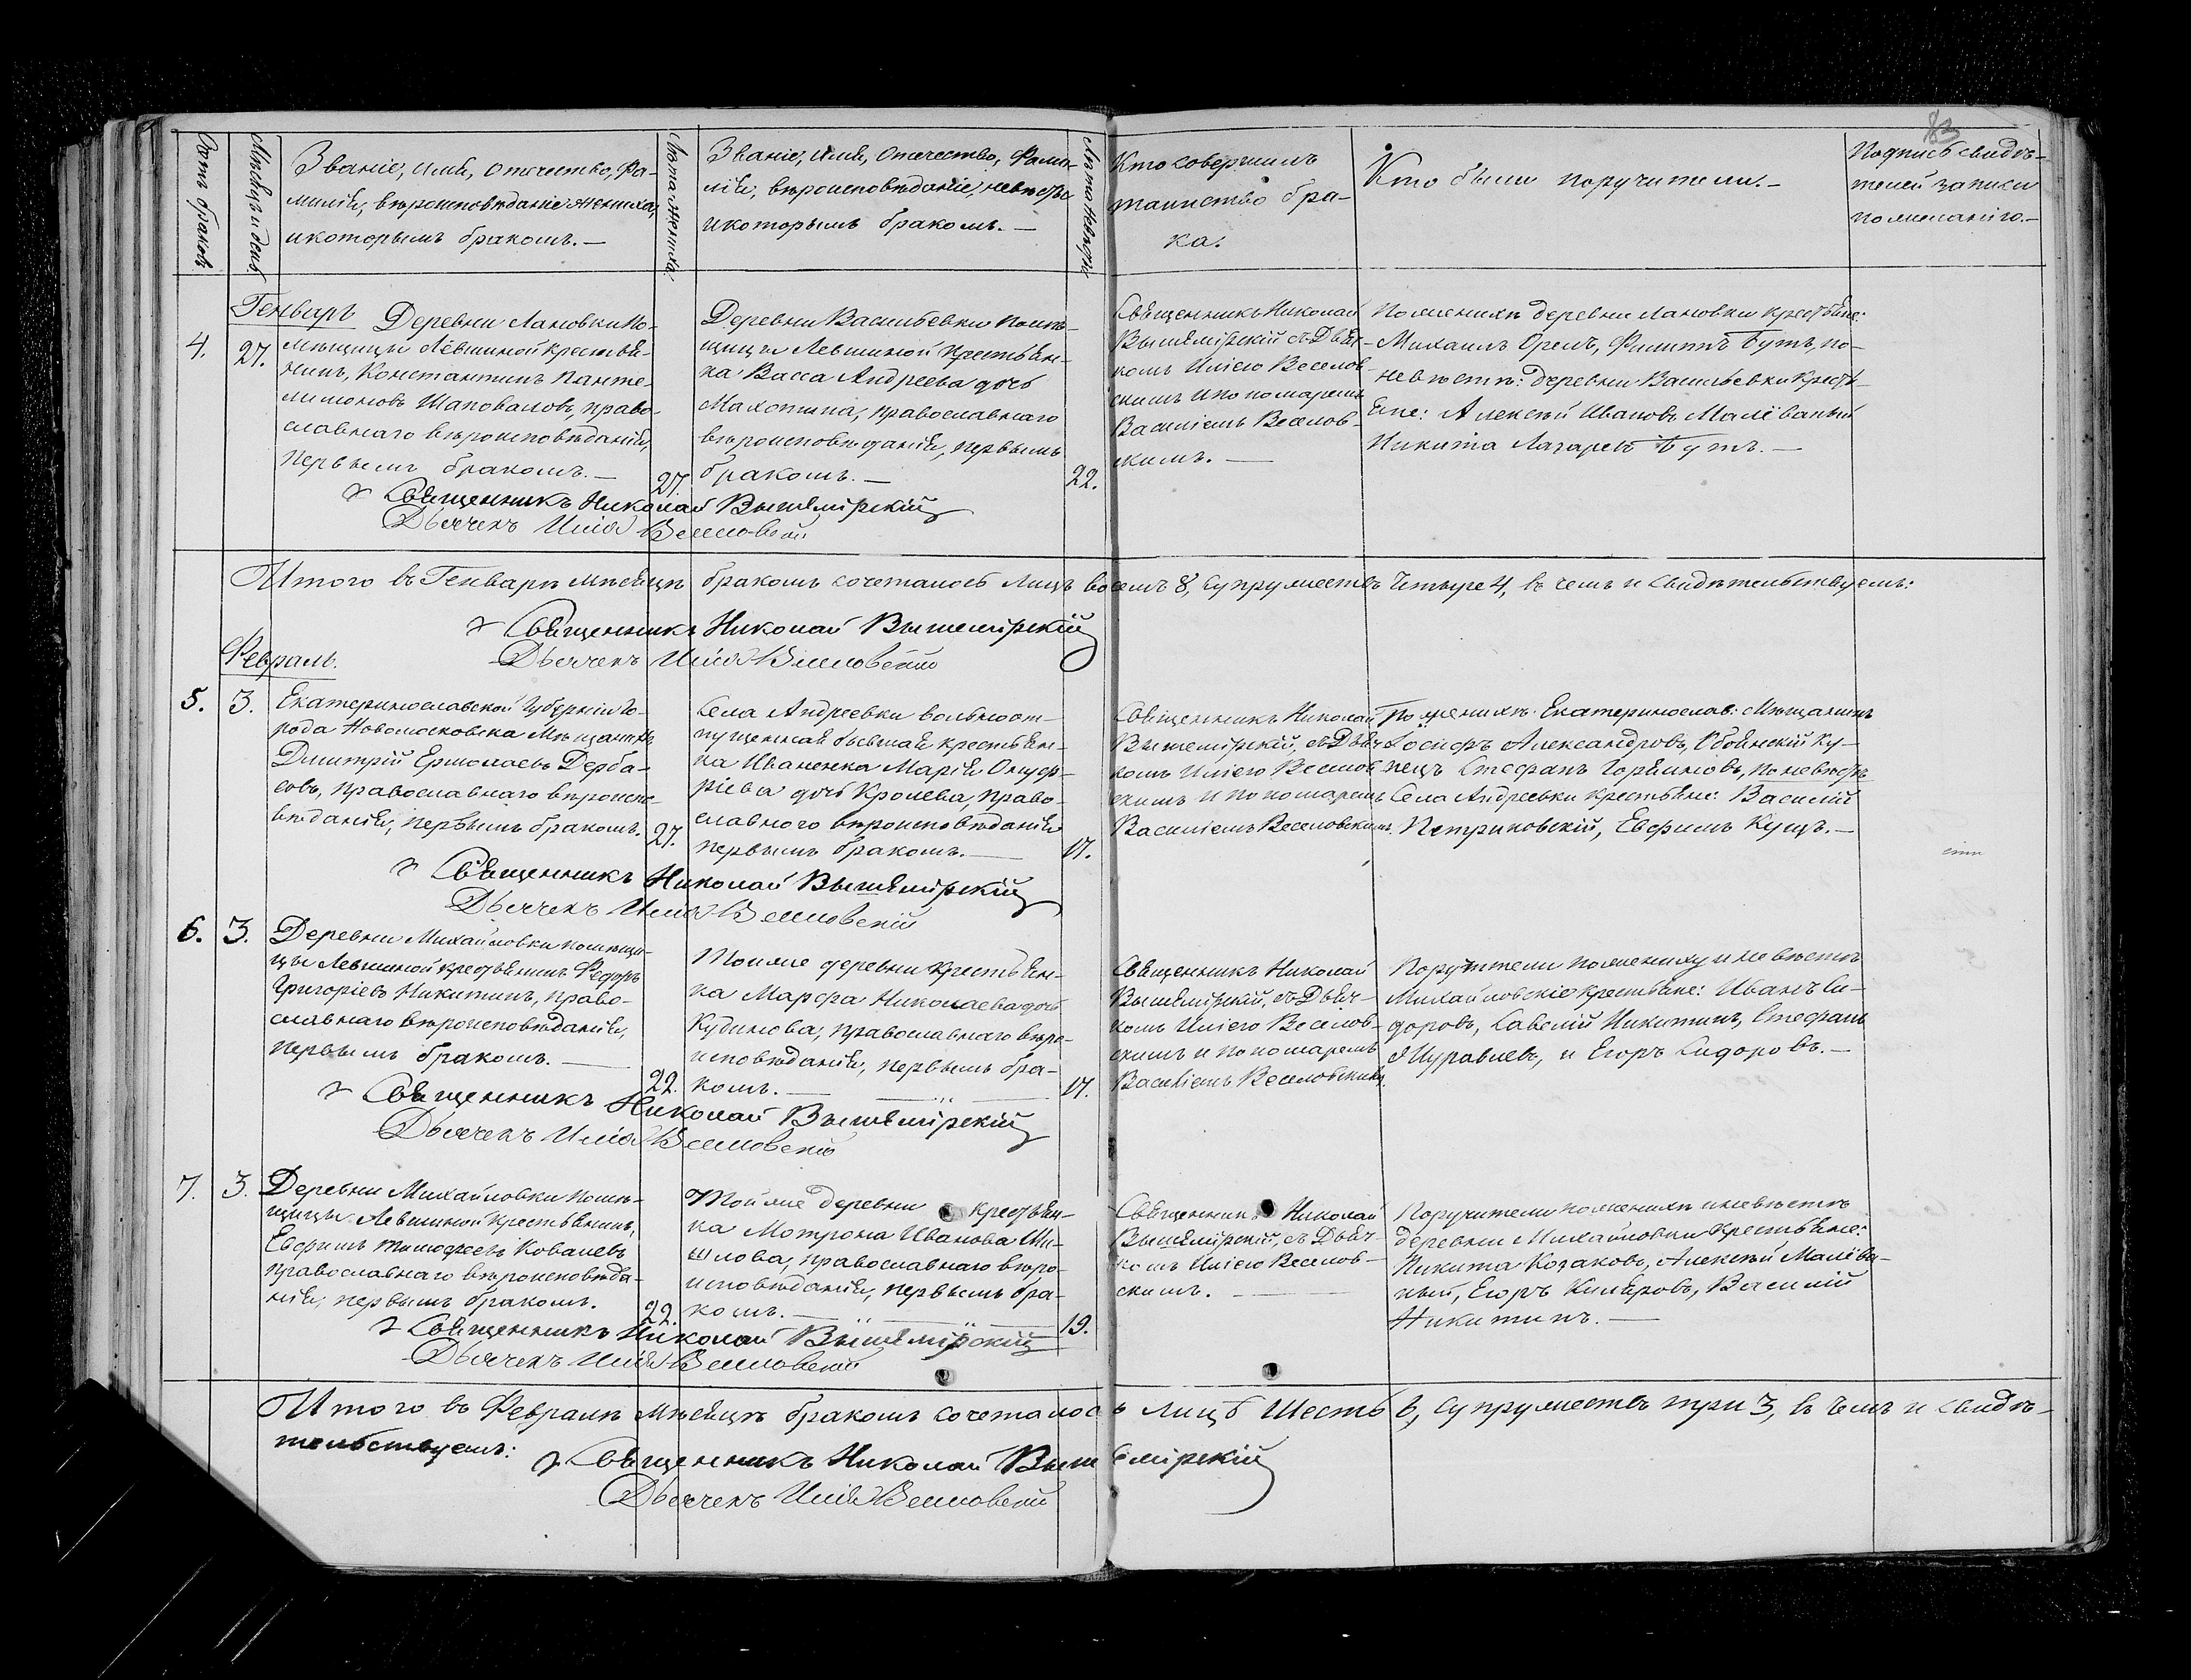 83
Счетъ браковъ.
Мѣсяцъ и день.
Званіе, имя, отчество, фа-
милія, вѣроисповѣданіе жениха,
и которымъ бракомъ.—
Лѣта жениха.
Званіе, имя, отечество, фами-
лія, вѣроисповѣданіе, невѣсты
и которымъ бракомъ.—
Лѣта невѣсты
Кто совершилъ
таинство бра-
ка.
Кто были поручители.—
Подпись свидѣ-
телей записи
по желанію.—
Генварь
4.
27.
Деревни Лановки по-
мѣщицы Лёвшиной крестья-
нинъ, Константинъ Панте-
лимоновъ Шаповаловъ, право-
славнаго вѣроисповѣданія,
первымъ бракомъ.—
27.
Деревни Васильевки помѣ-
щицы Левшиной крестьян-
ка Васса Андреева дочь
Махотина, православнаго
вѣроисповѣданія, первымъ
бракомъ.—
22.
Священникъ Николай
Вышемірскій съ Дьяч-
комъ Иліею Веселов-
скимъ и пономаремъ
Василіемъ Веселов-
скимъ.—
По женихѣ деревни Лановки крестьяне:
Михаилъ Орелъ, Филиппъ Бутъ, по
невѣстѣ: деревни Васильевки кресть-
яне: Алексѣй Ивановъ Малёваный
Никита Лазаревъ Бутъ.—
Священникъ Николай Вышемірскій
Дьячекъ Илія Веселовскій
Итого въ Генварѣ мѣсяцѣ бракомъ сочеталось лицъ восемь 8, супружествъ четыре 4, въ чемъ и свидѣтельствуемъ:
Священникъ Николай Вышемірскій
Дьячекъ Илія Веселовскій
Февраль.
5.
3.
Екатеринославской губерніи го-
рода Новомосковска мѣщанинъ
Димитрій Ермолаевъ Дерба-
совъ, православнаго вѣроиспо-
вѣданія, первымъ бракомъ.
27.
Села Андреевки вольноот-
пущенная бывшая крестьян-
ка Иваненка Марія Онуф-
ріева дочь Кролева, право-
славнаго вѣроисповѣданія
первымъ бракомъ.—
17.
Священникъ Николай
Вышемірскій, съ Дьяч-
комъ Иліею Веселов-
скимъ и пономаремъ
Василіемъ Веселовскимъ.
По женихѣ: Екатеринослав: мѣщанинъ
Іосифъ Александровъ, Обоянскій ку-
пецъ Стефанъ Горяиновъ, по невѣстѣ
села Андреевки крестьяне: Василій
Петриковскій, Евфимъ Кущъ.—
Священникъ Николай Вышемірскій
Дьячекъ Илія Веселовскій
6.
3.
Деревни Михайловки помѣщи-
цы Левшиной крестьянинъ Федоръ
Григоріевъ Никитинъ, право-
славнаго вѣроисповѣданія,
первымъ бракомъ.—
22.
Той же деревни крестьян-
ка Марфа Николаева дочь
Кудинова, православнаго вѣро-
исповѣданія, первымъ бра-
комъ.—
17.
Священникъ Николай
Вышемірскій, съ Дьяч-
комъ Иліею Веселов-
скимъ и пономаремъ
Василіемъ Веселовскимъ.
Поручители по жениху и невѣстѣ
Михайловскіе крестьяне: Иванъ Си-
доровъ, Савелій Никитинъ, Стефанъ
Журавлевъ, и Егоръ Сидоровъ.—
Священникъ Николай Вышемірскій
Дьячекъ Илія Веселовскій
7.
3.
Деревни Михайловки помѣ-
щицы Левшиной крестьянинъ,
Евфимъ Тимофеевъ Ковалевъ
православнаго вѣроисповѣда-
нія, первымъ бракомъ.
22.
Той же деревни крестьян-
ка Мотрона Иванова Ши-
шлова, православнаго вѣро-
исповѣданія, первымъ бра-
комъ.—
19.
Священникъ Николай
Вышемірскій, съ Дьяч-
комъ Иліею Веселов-
скимъ.—
Поручители по женихѣ и невѣстѣ
деревни Михайловки крестьяне:
Никита Козаковъ, Алексѣй Малёва-
ный, Егоръ Киляровъ, Василій
Никитинъ.—
Священникъ Николай Вышемірскій
Дьячекъ Илія Веселовскій
Итого въ Февралѣ мѣсяцѣ бракомъ сочеталось лицъ шесть 6, супружествъ три 3, въ чемъ и свидѣ-
тельствуемъ:
Священникъ Николай Вышемірскій
Дьячекъ Илія Веселовскій